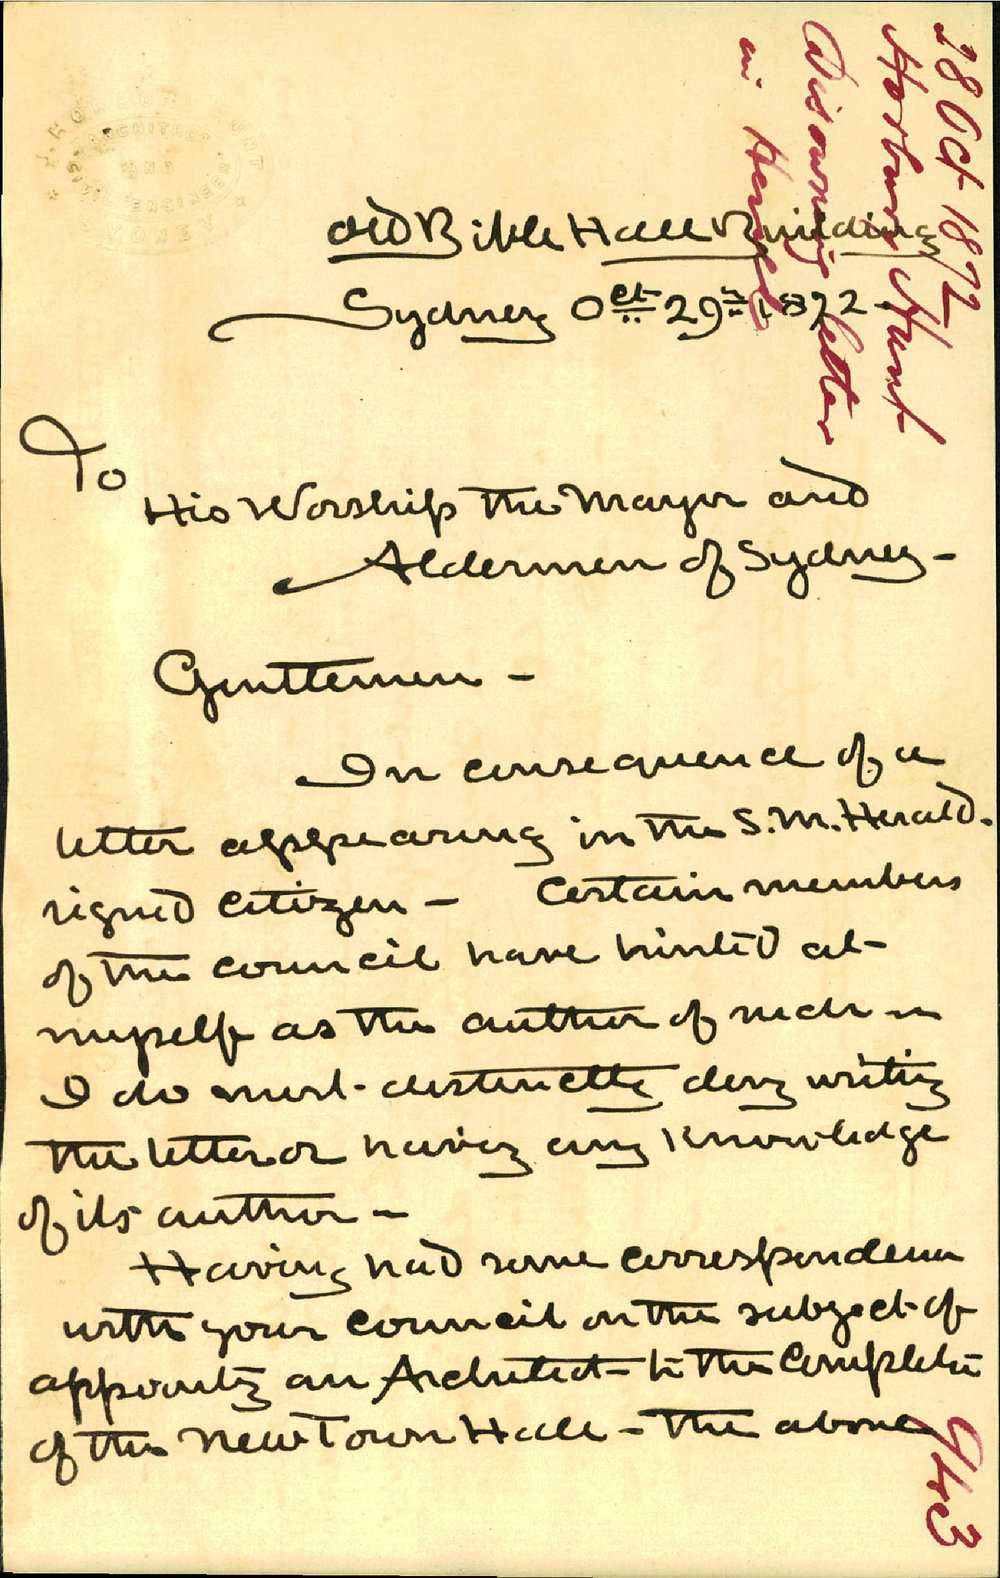 J. HORBURY HUNT
ARCHITECT
AND
CIVIL ENGINEER
SYDNEY
28 Oct 1872
Horbury Hunt
Disowning letter
in Herald
Old Bible Hall Building
Sydney Oct 29th 1872 -
To
His Worship the Mayor and
Aldermen of Sydney -
Gentlemen -
In consequence of a
letter appearing in the S.M. Herald.
signed Citizen - Certain members
of the Council have hinted at
myself as the author of such -
I do most distinctly deny writing
the letter or having any knowledge
of its author -
Having had some correspondence
with your Council on the subject of
appointing an Architect to the Completion
of the New Town Hall - the above
943